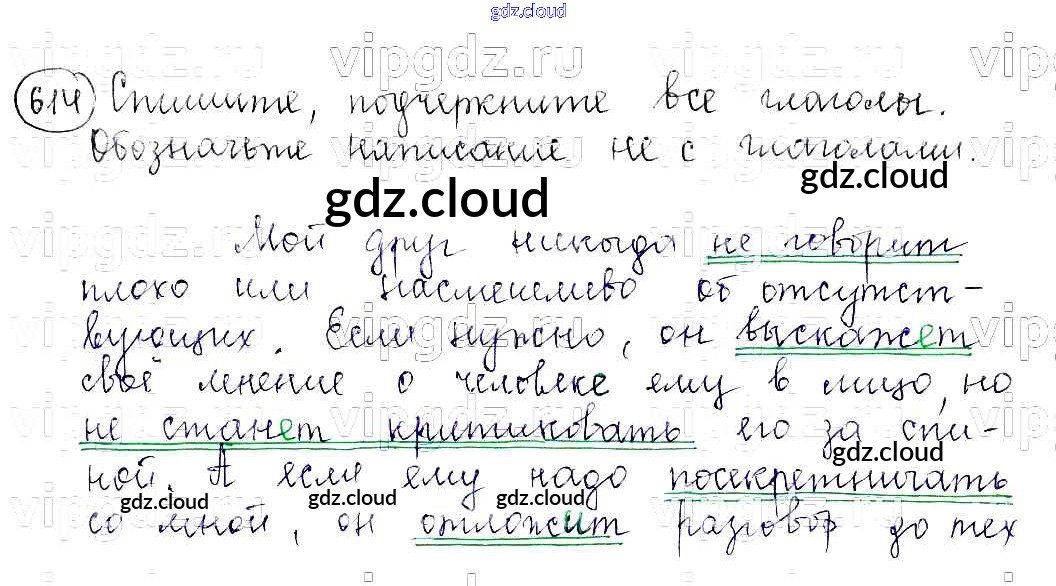 gdz.cloud
vipgdz.ru vipgdz.ru vipgdz.ru vipgdz
614 Спишите, подчеркните все глаголы.
Обозначьте написание не с глаголами.
gdz.cloud
gdz.cloud
Мой друг никогда не говорит
плохо или насмешливо об отсутст-
вующих. Если нужно, он выскажет
своё мнение о человеке ему в лицо, но
не станет критиковать его за спи-
gdz.cloud
ной. А если ему надо посекретничать
gdz.cloud gdz.cloud gdz.cloud
со мной, он отложит разговор до тех